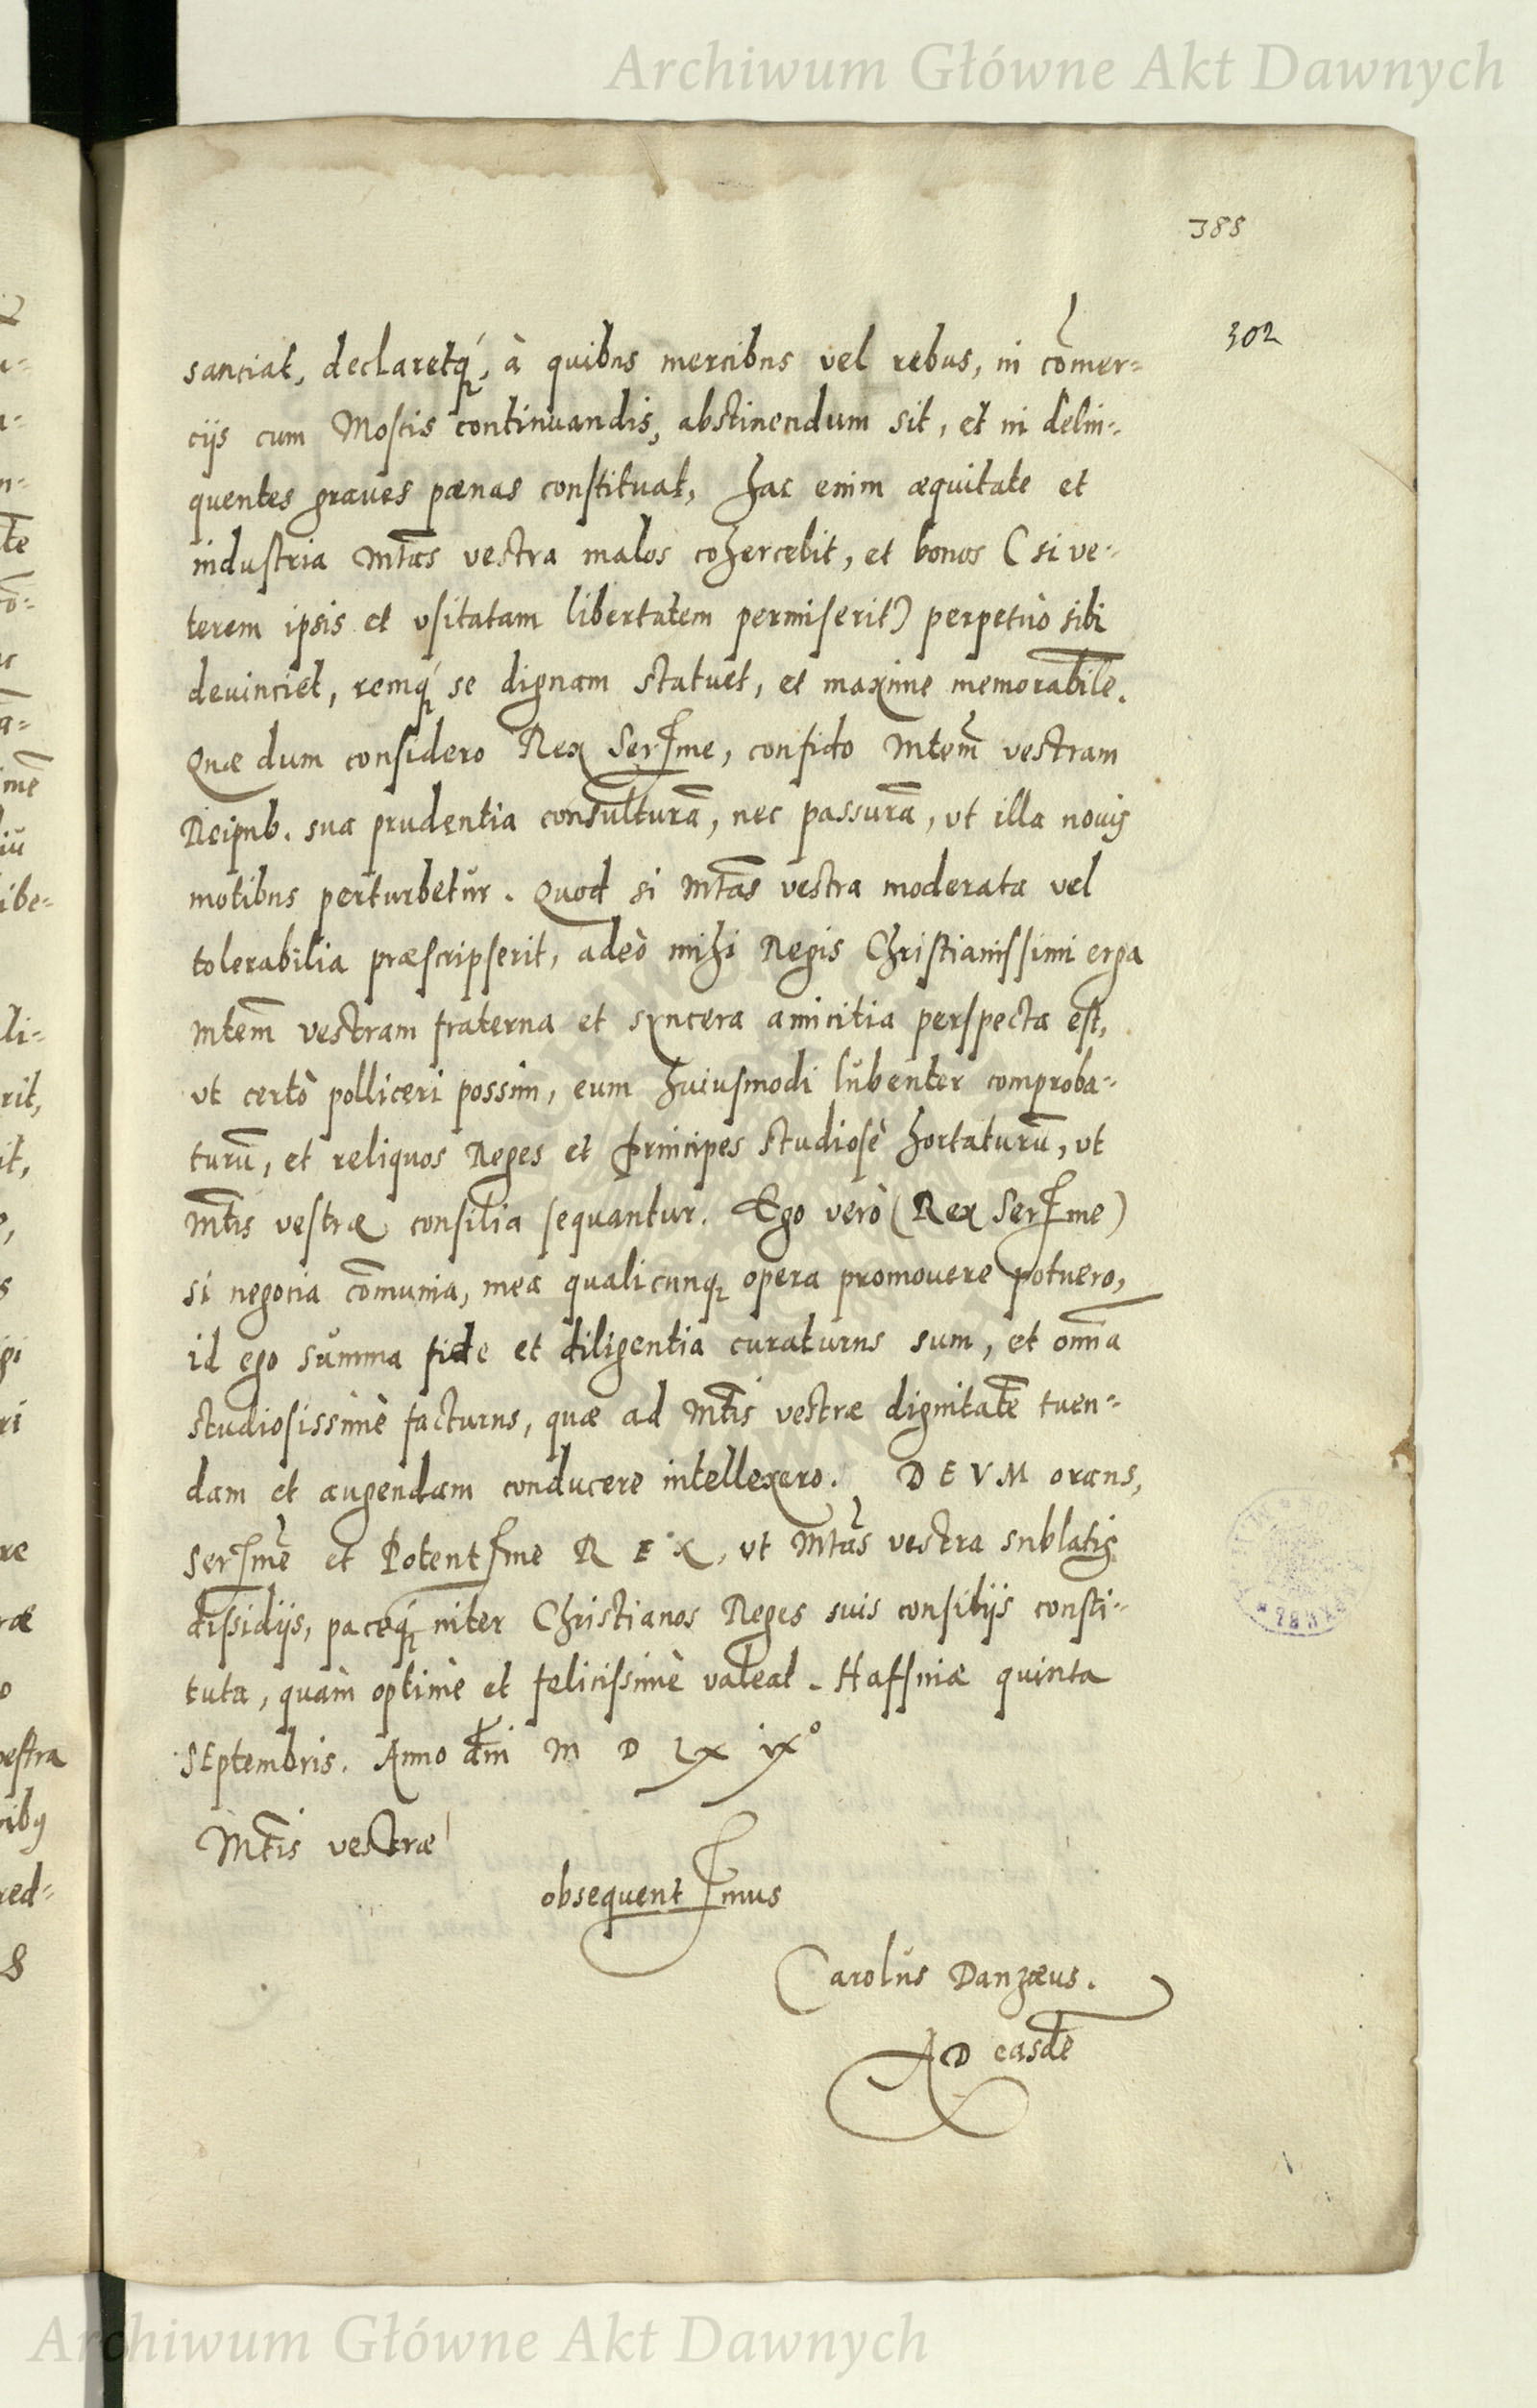 Archiwum Główne Akt Dawnych
388
302
sanciat, declaretq́, à quibus mercibus vel rebus, in com̄er-
cijs cum Moscis continuandis, abstinendum sit, et in delin-
quentes graues pœnas constituat, hac enim æquitate et
industria Mtas vestra malos cohercebit, et bonos (si ve-
terem ipsis et vsitatam libertatem permiserit) perpetuò sibi
deuinciet, remq́ se dignam statuet, et maxime memorabilē.
Quæ dum considero Rex Serſme, confido Mtem̄ vestram
Reipub. sua prudentia consulturā, nec passurā, vt illa nouis
motibus perturbetur. Quod si Mtas vestra moderata vel
tolerabilia præscripserit, adeò mihi Regis Christianissimi erga
Mtem̄ vestram fraterna et syncera amicitia perspecta est,
vt certò polliceri possim, eum huiusmodi lubenter comproba-
turū, et reliquos Reges et Principes studiosè hortaturū, vt
Mtis vestræ consilia sequantur. Ego verò (Rex Serſme)
si negocia com̄unia, mea qualicunq; opera promouere potuero,
id ego summa fide et diligentia curaturus sum, et omnia
studiosissimè facturus, quæ ad Mtis vestræ dignitatē tuen-
dam et augendam conducere intellexero. DEVM orans,
Serſmē et Potentſme REX, vt Mtas vestra sublatis
dissidijs, paceq́ inter Christianos Reges suis consilijs consti-
tuta, quàm optimè et felicissimè valeat. Haffniæ quinta
SEptembris. Anno dn̄i M D LX ix°
Mtis vestræ
obsequentſmus
Carolus Danzæus.
AD easdē
Archiwum Główne Akt Dawnych